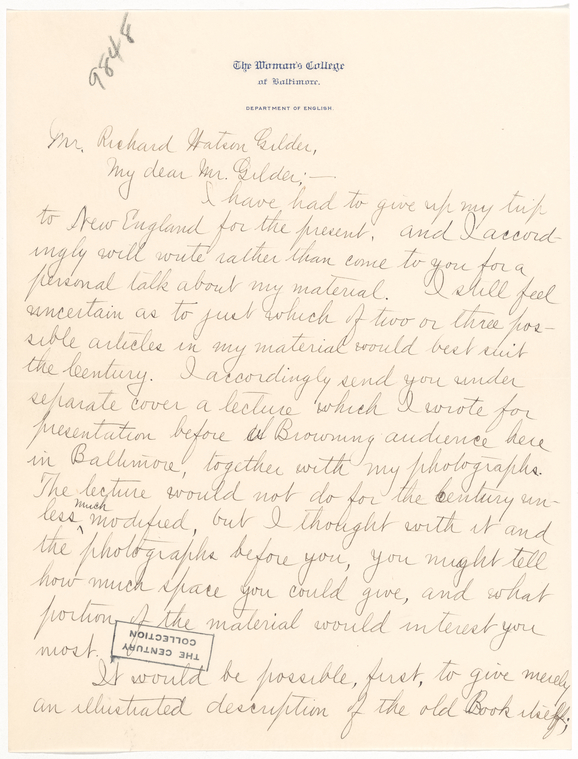 9848
The Woman's College
of Baltimore.
DEPARTMENT OF ENGLISH.
Mr. Richard Watson Gilder,
My dear Mr. Gilder;—
I have had to give up my trip
to New England for the present, and I accord-
ingly will write rather than come to you for a
personal talk about my material. I still feel
uncertain as to just which of two or three pos-
sible articles in my material would best suit
the Century. I accordingly send you under
separate cover a lecture which I wrote for
presentation before a Browning audience here
in Baltimore, together with my photographs.
The lecture would not do for the Century un-
less much modified, but I thought with it and
the photographs before you, you might tell
how much space you could give, and what
portion of the material would interest you
most.
THE CENTURY
COLLECTION
It would be possible, first, to give merely
an illustrated description of the old Book itself;